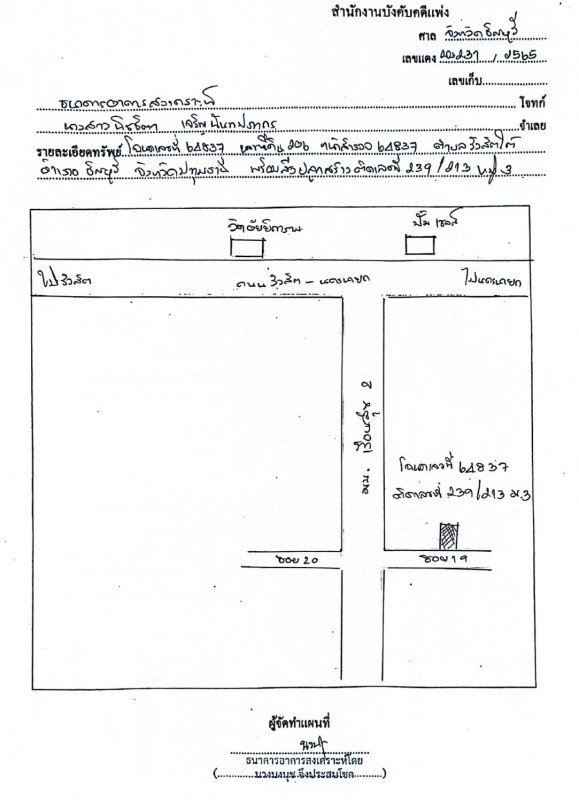 สำนักงานบังคับคดีแพ่ง
ศาล จังหวัดธัญบุรี
เลขแดง / 2565
เลขเก็บ
ธนาคารอาคารสงเคราะห์ โจทก์
นางสาว จำเลย
รายละเอียดทรัพย์ โฉนดเลขที่ 64837 เลขที่ดิน หน้าสำรวจ 64837 ตำบล รังสิตใต้
อำเภอ ธัญบุรี จังหวัดปทุมธานี พร้อมสิ่งปลูกสร้าง ติดเลขที่ 239/213 หมู่ 3
ปั๊ม เชลล์
ไปรังสิต ถนน รังสิต - นครนายก ไปนครนายก
มบ. 2
โฉนดเลขที่ 64837
ติดเลขที่ 239/213 ม.3
ซอย 20 ซอย 19
ผู้จัดทำแผนที่
ธนาคารอาคารสงเคราะห์โดย
(นางนงนุช จึงประสบโชค)